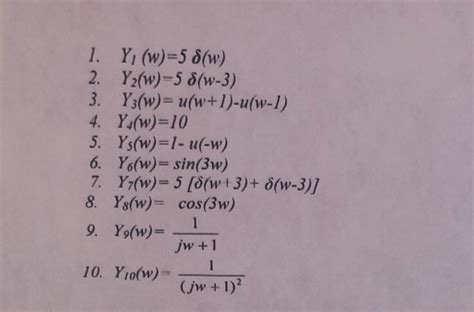 1. Y1 (w)=5 δ(w)
2. Y2(w)=5 δ(w-3)
3. Y3(w)= u(w+1)-u(w-1)
4. Y4(w)=10
5. Y5(w)=1- u(-w)
6. Y6(w)= sin(3w)
7. Y7(w)= 5 [δ(w+3)+ δ(w-3)]
8. Y8(w)= cos(3w)
9. Y9(w)= 1/(jw +1)
10. Y10(w)= 1/(jw +1)²